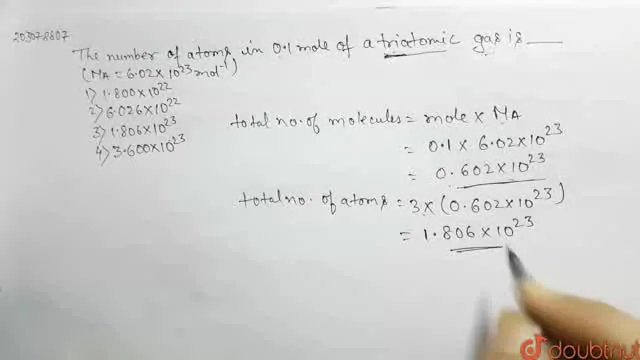 203078607
The number of atoms in 0.1 mole of a triatomic gas is
(NA = 6.02 x 10^23 mol^-1)
1) 1.800 x 10^22
2) 6.026 x 10^22
3) 1.806 x 10^23
4) 3.600 x 10^23
total no. of molecules = mole x NA
= 0.1 x 6.02 x 10^23
= 0.602 x 10^23
total no. of atoms = 3 x (0.602 x 10^23)
= 1.806 x 10^23
doubtnut